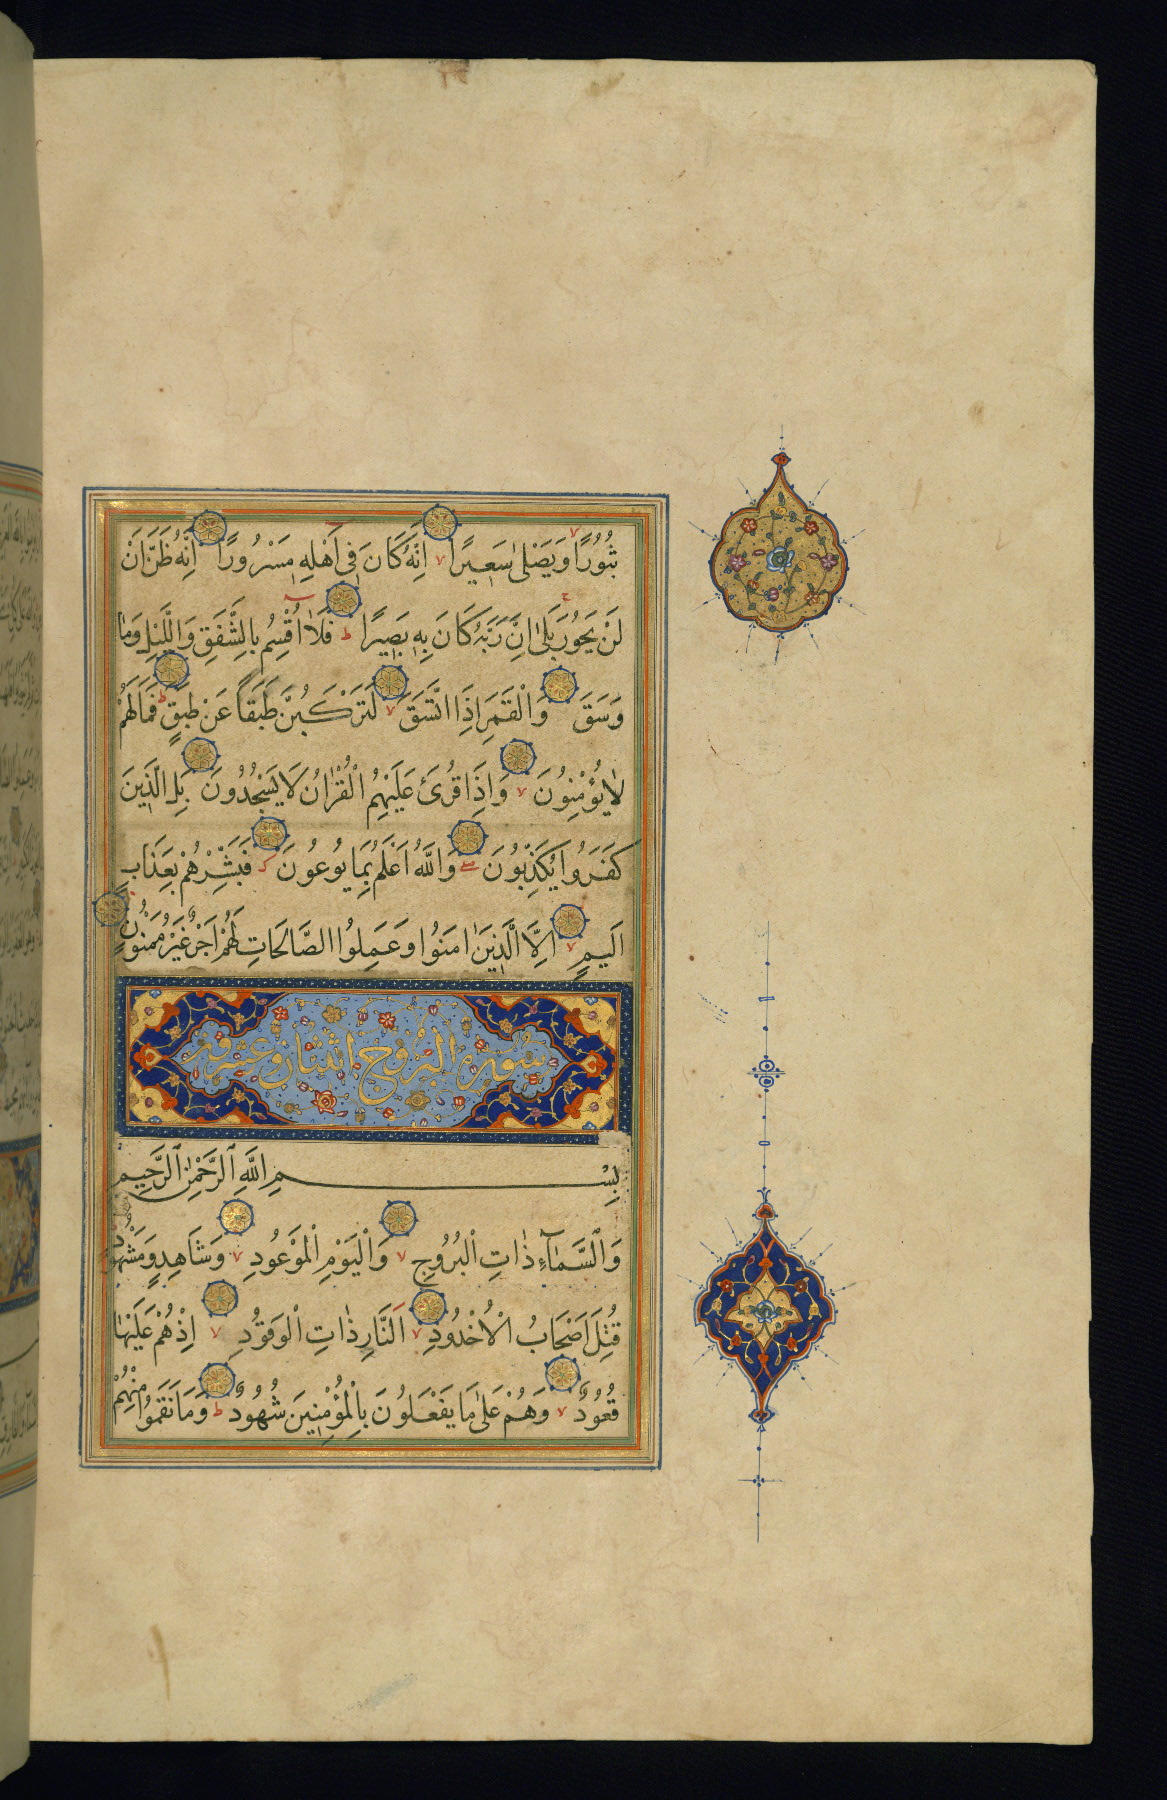 ثُبُورًا وَيَصْلٰى سَعِيرًا اِنَّهُ كَانَ فِى اَهْلِهِ مَسْرُورًا اِنَّهُ ظَنَّ اَنْ
لَنْ يَحُورَ بَلٰى اِنَّ رَبَّهُ كَانَ بِهِ بَصِيرًا فَلَا اُقْسِمُ بِالشَّفَقِ وَالَّيْلِ وَمَا
وَسَقَ وَالْقَمَرِ اِذَا اتَّسَقَ لَتَرْكَبُنَّ طَبَقًا عَنْ طَبَقٍ فَمَا لَهُمْ
لَا يُؤْمِنُونَ وَاِذَا قُرِئَ عَلَيْهِمُ الْقُرْاٰنُ لَا يَسْجُدُونَ بَلِ الَّذِينَ
كَفَرُوا يُكَذِّبُونَ وَاللّٰهُ اَعْلَمُ بِمَا يُوعُونَ فَبَشِّرْهُمْ بِعَذَابٍ
اَلِيمٍ اِلَّا الَّذِينَ اٰمَنُوا وَعَمِلُوا الصَّالِحَاتِ لَهُمْ اَجْرٌ غَيْرُ مَمْنُونٍ
سورة البروج اثنتان وعشرون
بِسْمِ اللّٰهِ الرَّحْمٰنِ الرَّحِيمِ
وَالسَّمَآءِ ذَاتِ الْبُرُوجِ وَالْيَوْمِ الْمَوْعُودِ وَشَاهِدٍ وَمَشْهُودٍ
قُتِلَ اَصْحَابُ الْاُخْدُودِ اَلنَّارِ ذَاتِ الْوَقُودِ اِذْ هُمْ عَلَيْهَا
قُعُودٌ وَهُمْ عَلٰى مَا يَفْعَلُونَ بِالْمُؤْمِنِينَ شُهُودٌ وَمَا نَقَمُوا مِنْهُمْ